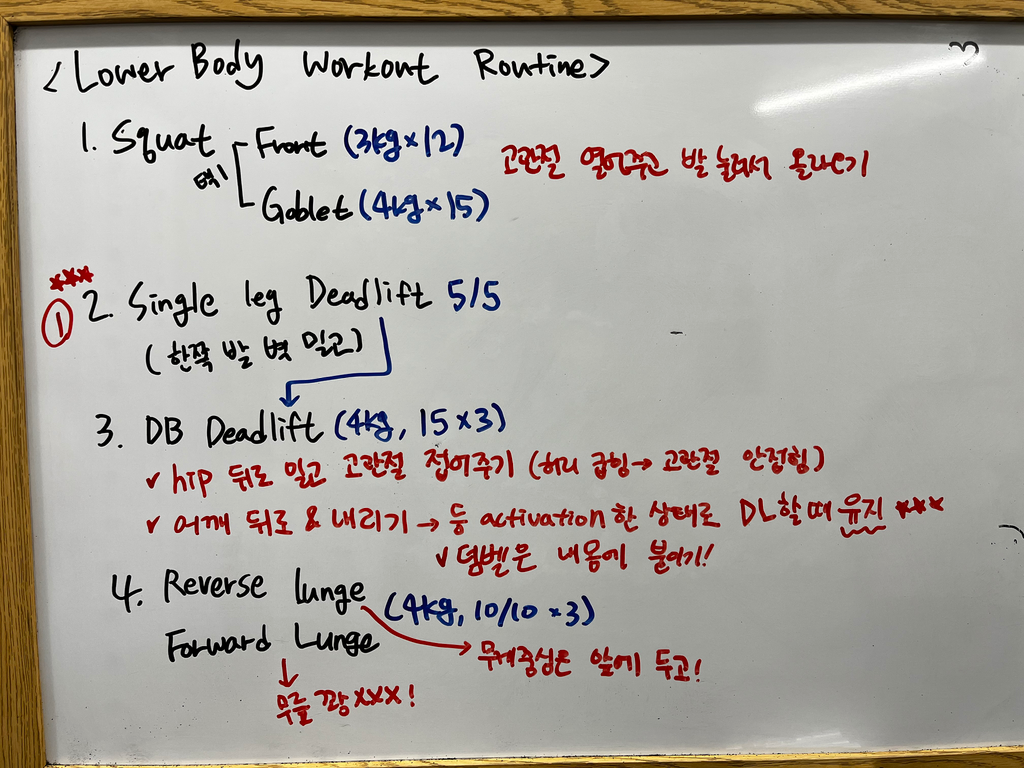 <Lower Body Workout Routine>
3
1. Squat Front (3kg×12)
턱!
고관절 열어주고 발 눌러서 올라오기
Goblet (4kg×15)
***
① 2. Single leg Deadlift 5/5
(한쪽 발 벽 밀고)
3. DB Deadlift (4kg, 15×3)
✓ hip 뒤로 밀고 고관절 접어주기 (허리 굽힘→ 고관절 안접힘)
✓ 어깨 뒤로 & 내리기 → 등 activation한 상태로 DL할때 유지 ***
✓ 덤벨은 내몸에 붙이기!
4. Reverse lunge (4kg, 10/10 ×3)
Forward Lunge
무게중심은 앞에 두고!
무릎 꽝 ×××!